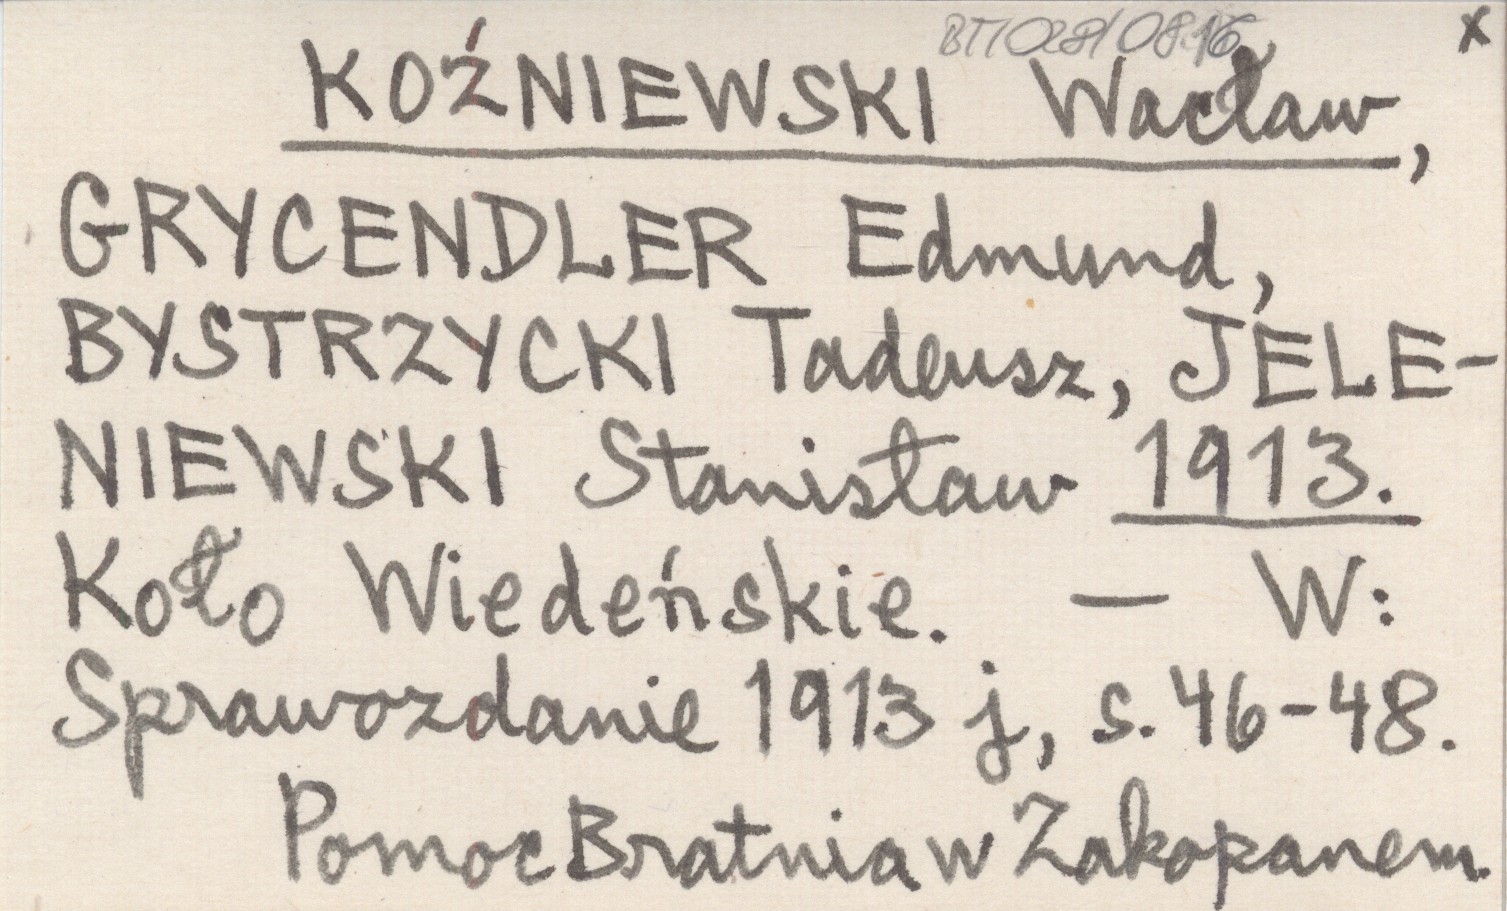 BT/028/0816 x
KOŹNIEWSKI Wacław,
GRYCENDLER Edmund,
BYSTRZYCKI Tadeusz, JELE-
NIEWSKI Stanisław 1913.
Koło Wiedeńskie. — W:
Sprawozdanie 1913 j, s. 46-48.
Pomoc Bratnia w Zakopanem.